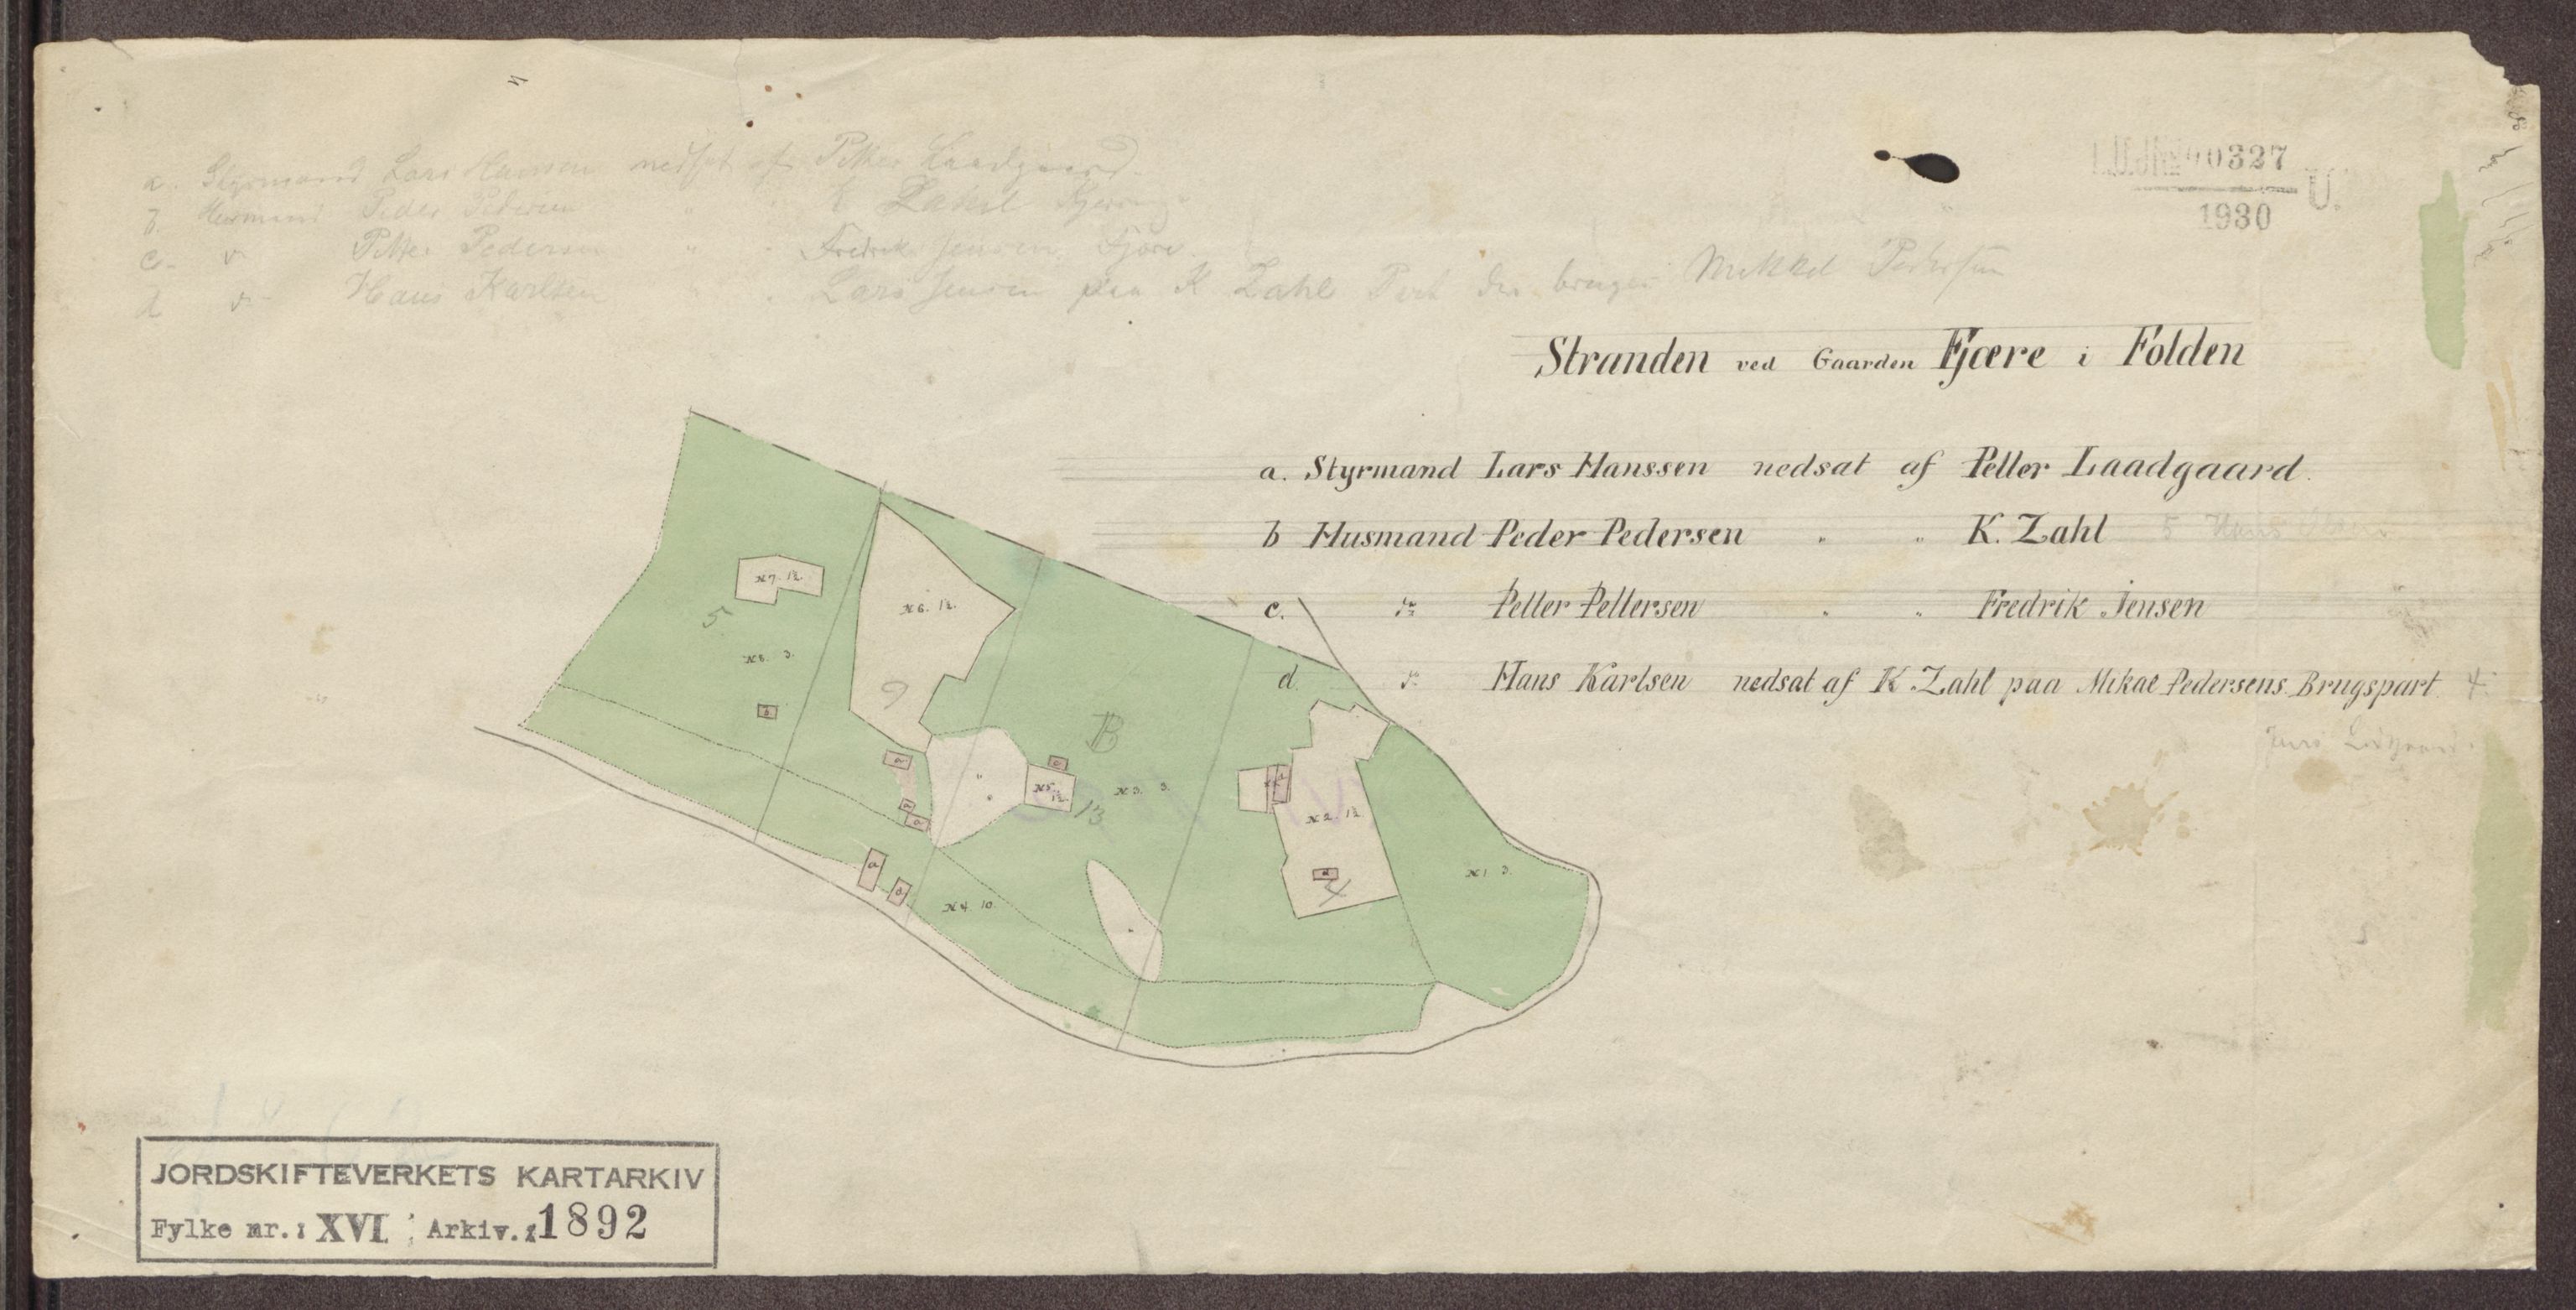 a. Styrmand Lars Hansen nedsat af Petter Laadgaard.
b. Husmand Peder Pedersen " " K Zahl Kjerringø
c. " Petter Pedersen " " Fredrik Jensen, Fjøre.
d " Hans Karlsen " " Lars Jensen paa K Zahls Part der bruges Mikkel Pedersen
J.U.J.No 00327 U.
1930
Stranden ved Gaarden Fjære i Folden
a. Styrmand Lars Hanssen nedsat af Petter Laadgaard.
b Husmand Peder Pedersen " " K. Zahl 5 Hans
c. " Petter Pettersen " " Fredrik Jensen
d. " Hans Karlsen nedsat af K. Zahl paa Mikal Pedersens Brugspart. 4
N 7. 1½.
N 6. 1½.
5.
N 8. 3.
9
b
B
a
c
N 5. 1½.
N 3. 3.
13
d
a
a
N 2. 1½
a
a
d
4
N 1 3.
N 4. 10
JORDSKIFTEVERKETS KARTARKIV
Fylke nr.: XVI ; Arkiv.: 1892